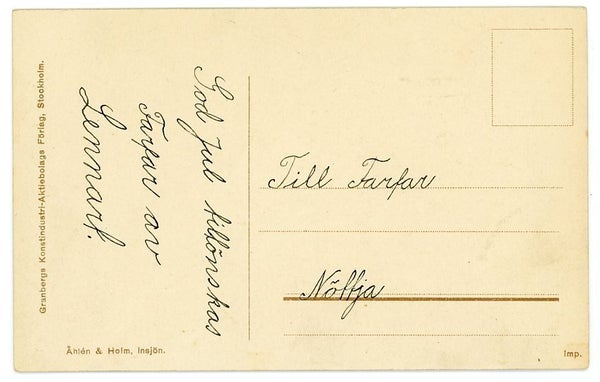 God Jul tillönskas
Farfar av
Lennart.
Till Farfar
Nölfja
Granbergs Konstindustri-Aktiebolags Förlag, Stockholm.
Åhlén & Holm, Insjön.
Imp.